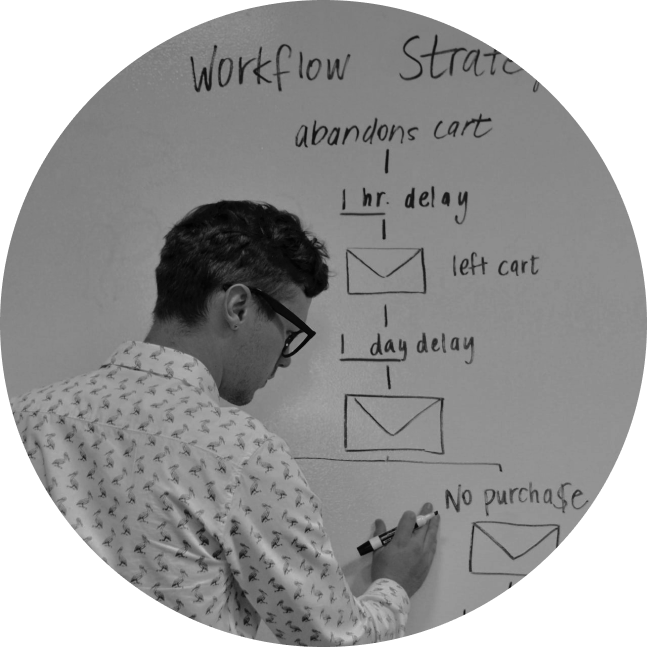 Workflow
abandons cart
1 hr. delay
left cart
1 day delay
No purchase